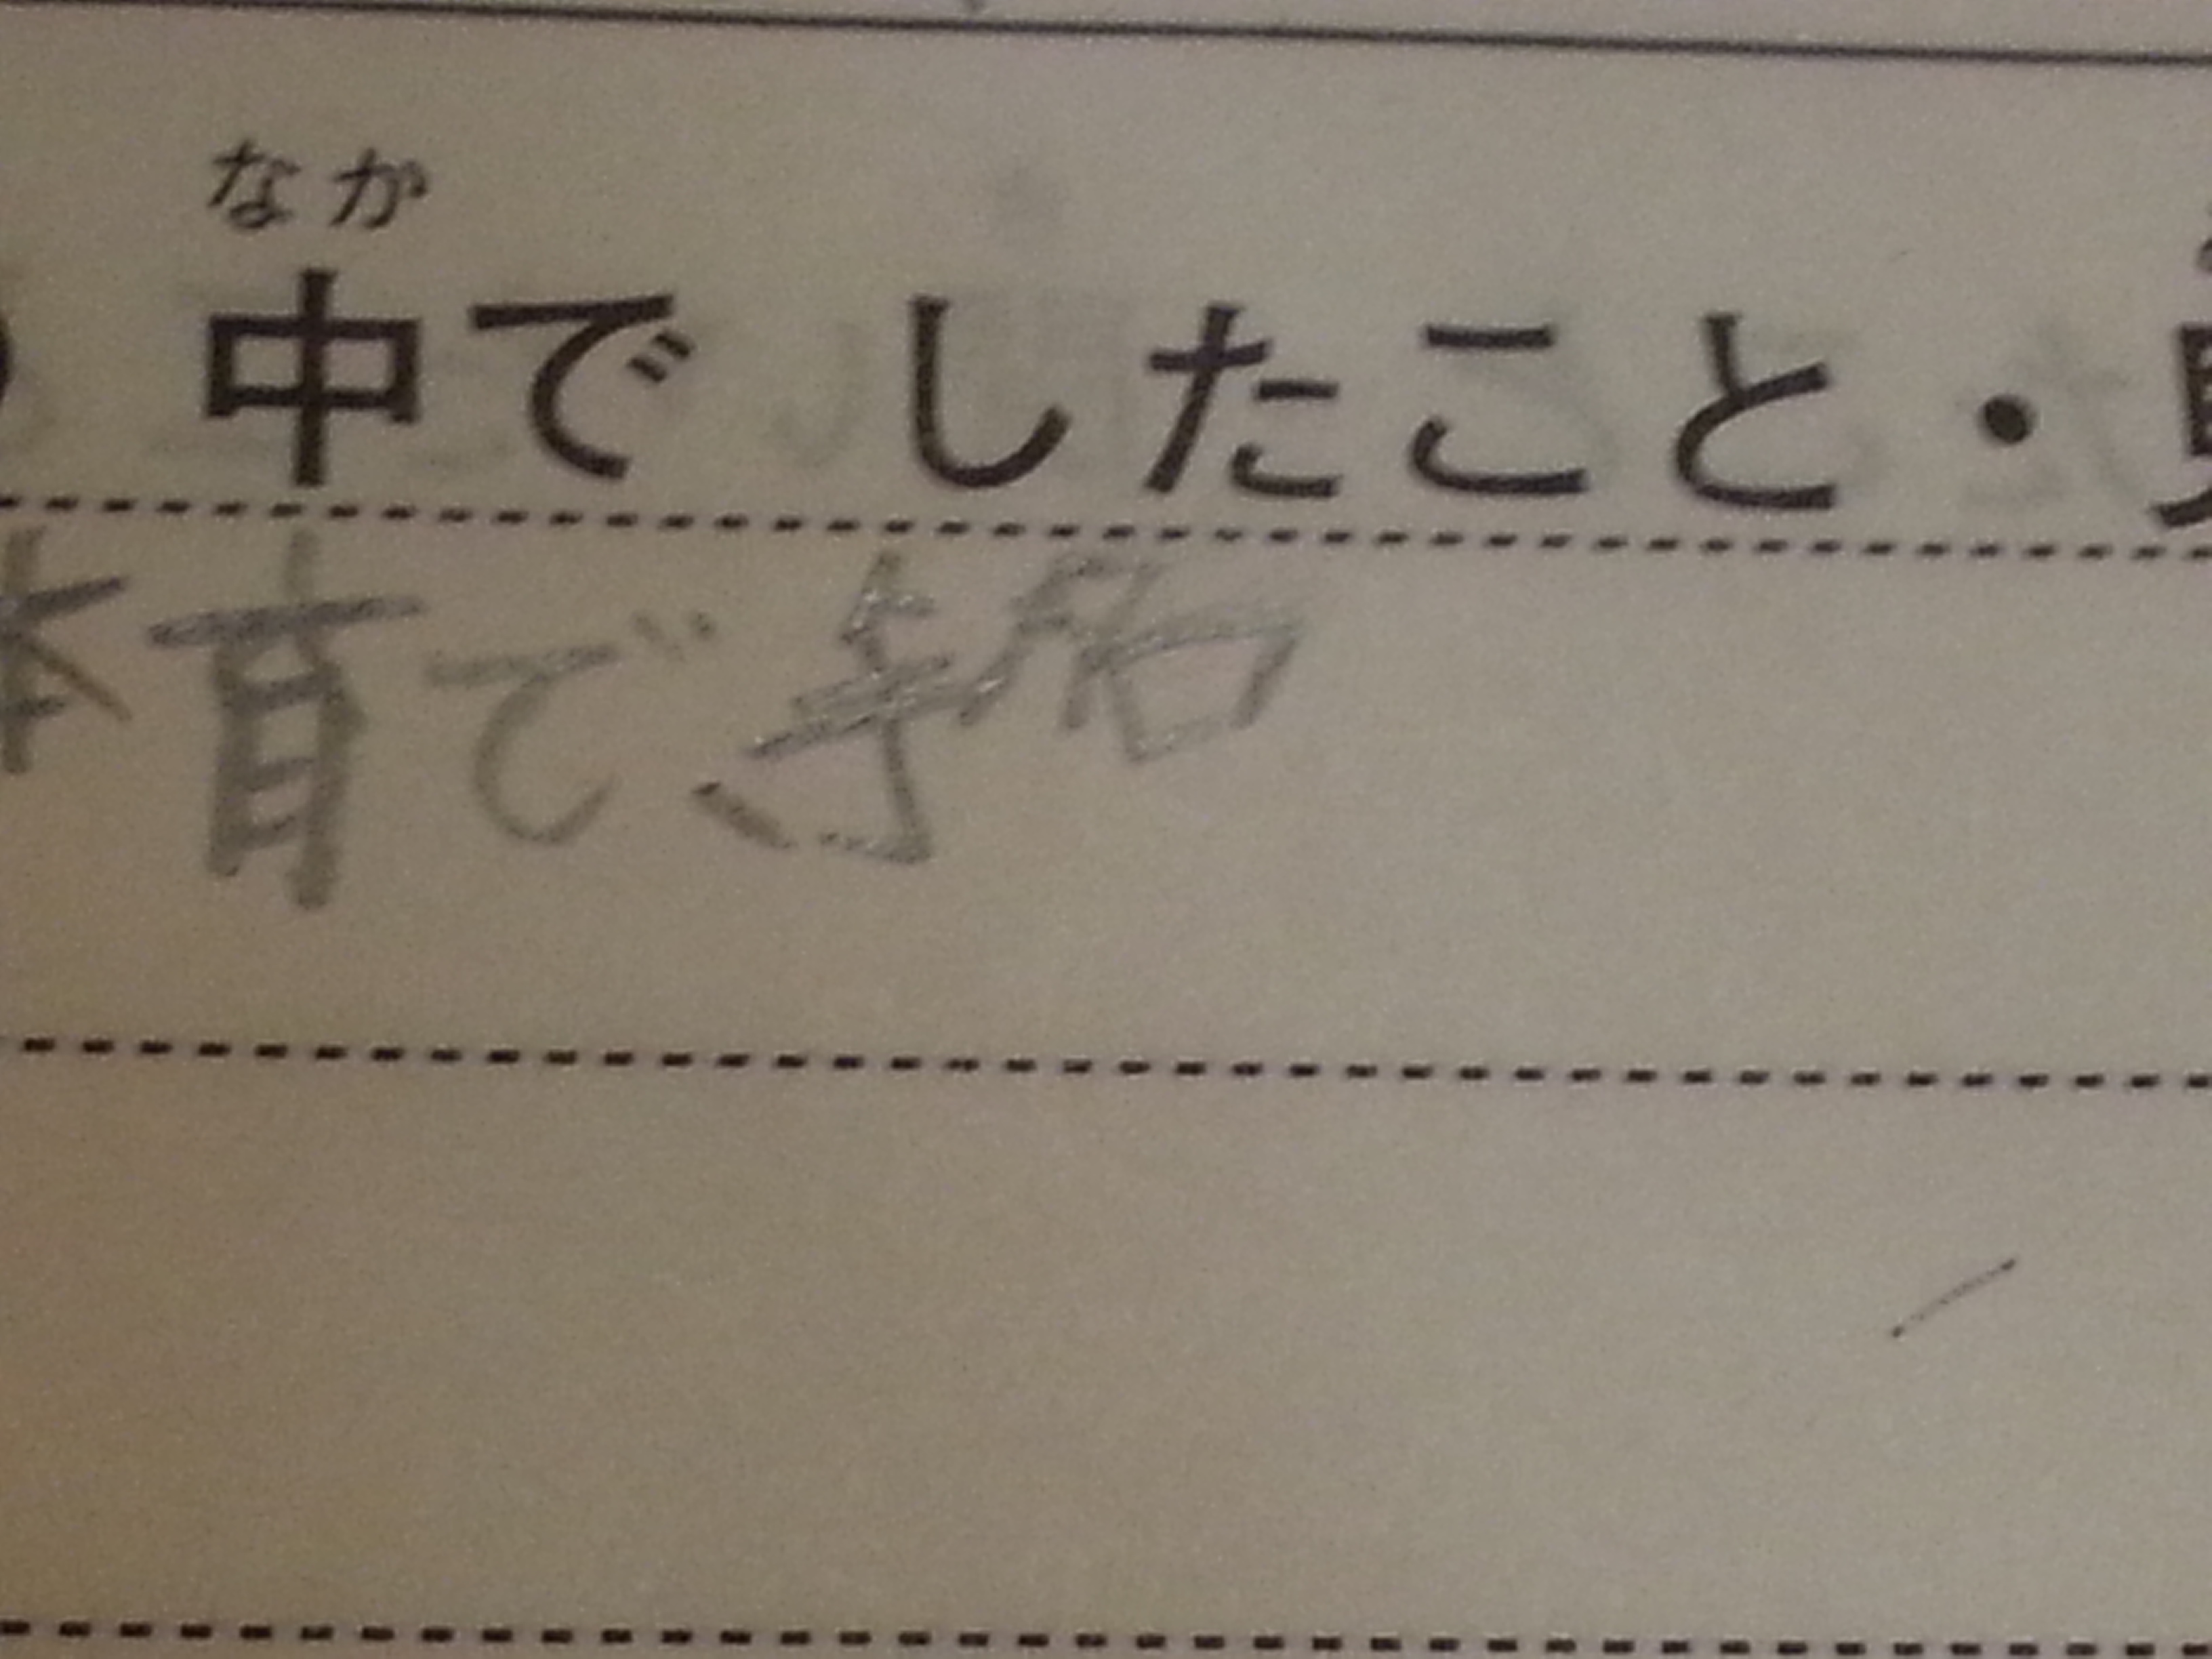 なか
中で したこと・見
体育で